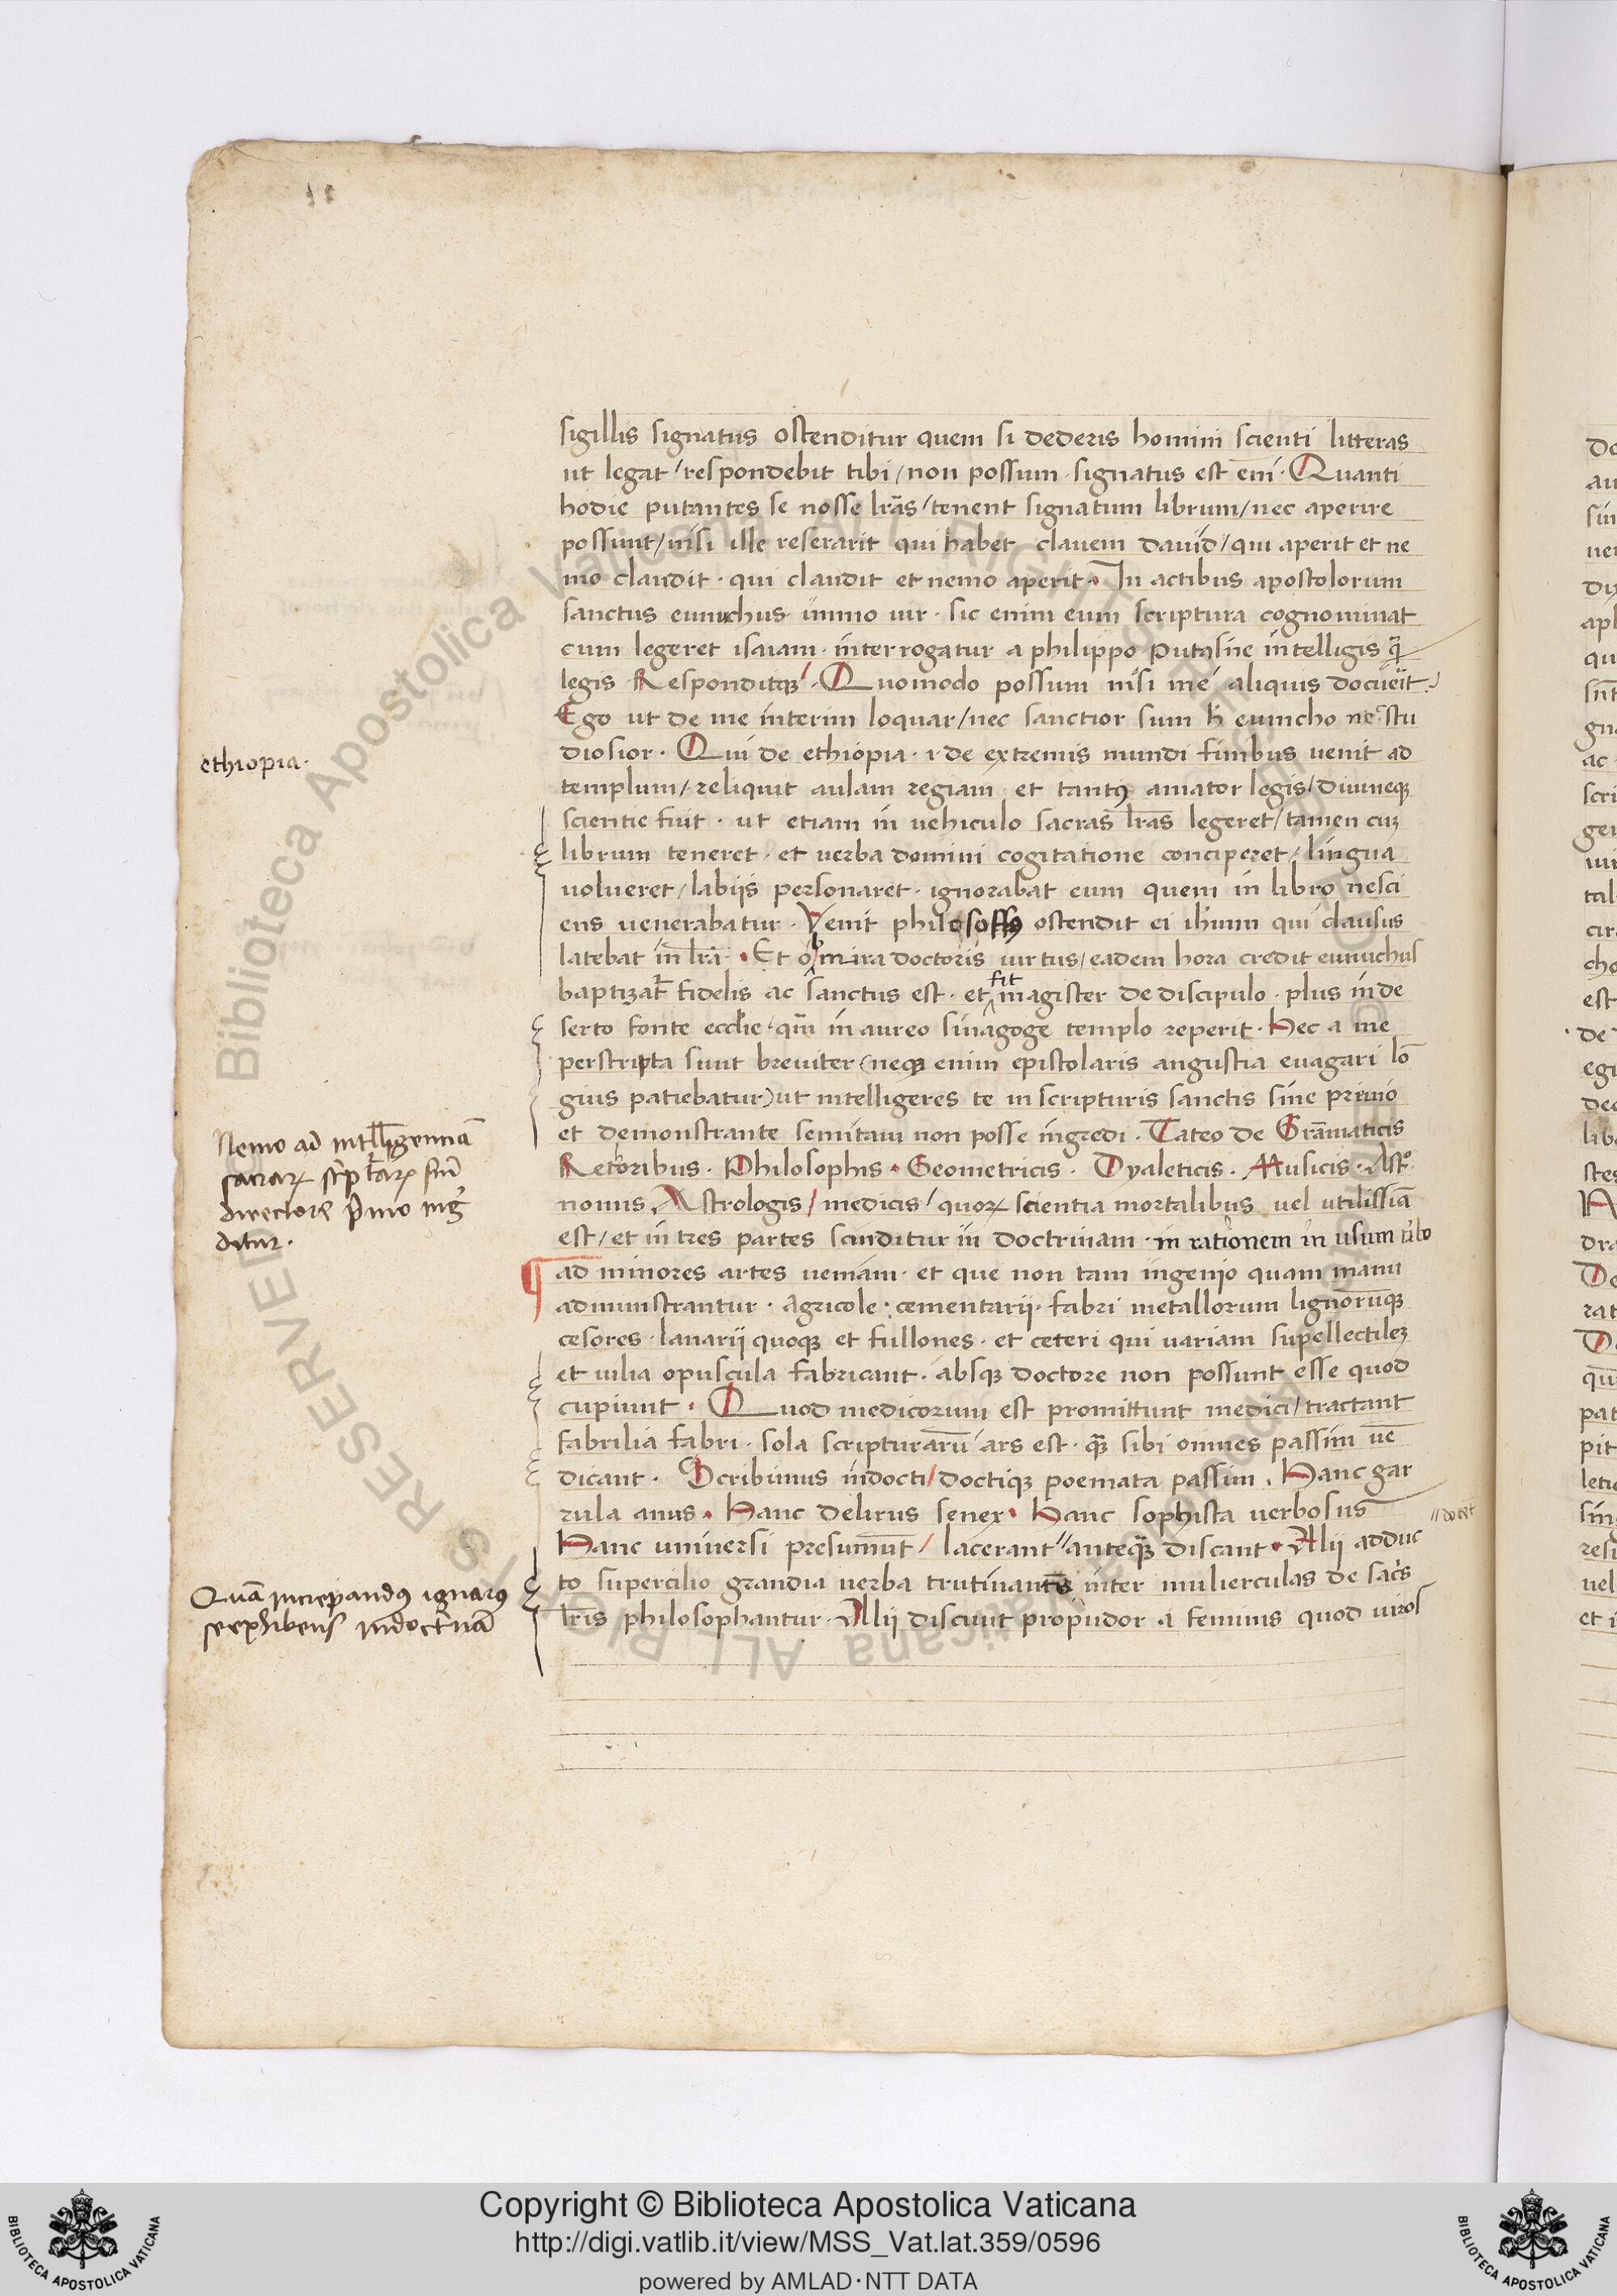 sigillis signatus ostenditur quem si dederis homini scienti litteras
ut legat / respondebit tibi / non possum · signatus est em̄ · Quanti
hodie putantes se nosse lr̄as / tenent signatum librum / nec aperire
possunt / nisi ille reserarit qui habet clavem david / qui aperit et ne
mo claudit · qui claudit et nemo aperit · In actibus apostolorum
sanctus eunuchus immo uir · sic enim eum scriptura cognominat
cum legeret isaiam · interrogatur a philippo putasne intelligis q̄
legis Responditqꝫ · Quomodo possum nisi me aliquis docueit
Ego ut de me interim loquar / nec sanctior sum h̄ eunucho ne stu
ethiopia ·
diosior · Qui de ethiopia · i · de extremis mundi finibus uenit ad
templum / reliquit aulam regiam et tantꝰ amator legis / diuineqꝫ
scientie fuit · ut etiam in uehiculo sacras lr̄as legeret / tamen cuꝫ
librum teneret · et uerba domini cogitatione conciperet / lingua
uolueret / labijs personaret · ignorabat eum quem in libro nesci
ens uenerabatur · Venit ostendit ei ih̄um qui clausus
latebat in lr̄a · Et o mira doctoris uirtus / eadem hora credit eunuchus
baptizat̄ fidelis ac sanctus est · et fit magister de discipulo · plus in de
serto fonte eccl̄ie · qm̄ in aureo sinagoge templo reperit · Hec a me
perstripta sunt breuiter (neqꝫ enim epistolaris angustia euagari lō
gius patiebatur) ut intelligeres te in scripturis sanctis sine preuio
Nemo ad intllīgentiā
sacraꝝ
directore p̄uio ingͬ
ditur ·
et demonstrante semitam non posse ingredi · Taceo de Grāmaticis
Rethoribus · Philosophis · Geometricis · Dyaleticis · Musicis · Astͦ
nomis Astrologis / medicis / quoꝝ scientia mortalibus uel utilissīa
est / et in tres partes scinditur in doctrinam · in rationem in usum
ad minores artes ueniam · et que non tam ingenio quam manu
administrantur · agricole : cementarii · fabri metallorum lignoruqꝫ
cesores · lanarij quoqꝫ et fullones · et ceteri qui uariam supellectileꝫ
et uilia opuscula fabricant · absqꝫ doctore non possunt esse quod
cupiunt · Quod medicorum est promittunt medici / tractant
fabrilia fabri · sola scripturarū ars est · qꝫ sibi omnes passim ue
dicant · Scribimus indocti / doctiqꝫ poemata passim · Hanc gar
rula anus · Hanc delirus senex · Hanc sophista uerbosus
// docēt
Hanc uniuersi presumūt / lacerant // anteqꝫ discant · Alii adduc
Quā increpandꝰ ignarꝰ
to supercilio grandia uerba trutinantes inter mulierculas de sacis
lr̄is philosophantur · Alij discunt propudor a feminis quod uiros
Copyright © Biblioteca Apostolica Vaticana
http://digi.vatlib.it/view/MSS_Vat.lat.359/0596
powered by AMLAD · NTT DATA
BIBLIOTECA APOSTOLICA VATICANA
BIBLIOTECA APOSTOLICA VATICANA